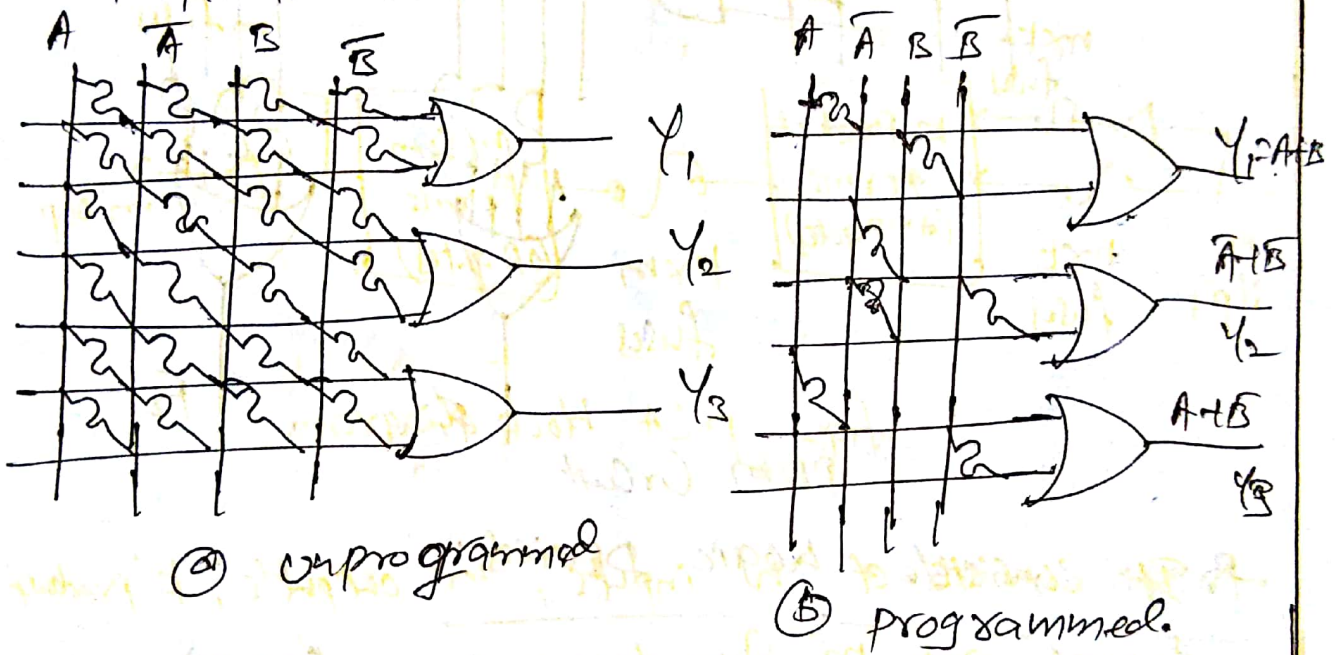 A A̅ B B̅
Y₁
Y₂
Y₃
ⓐ unprogrammed
A A̅ B B̅
Y₁=A+B
A̅+B̅
Y₂
A+B̅
Y₃
ⓑ programmed.